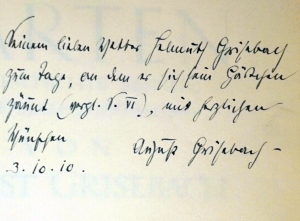 Seinem lieben Vetter Helmuth Grisebach
zum Tage, an dem er sich sein Gärtchen
zäunt (vergl. S. VI), mit herzlichen
Wünschen
August Grisebach
3.10.10.